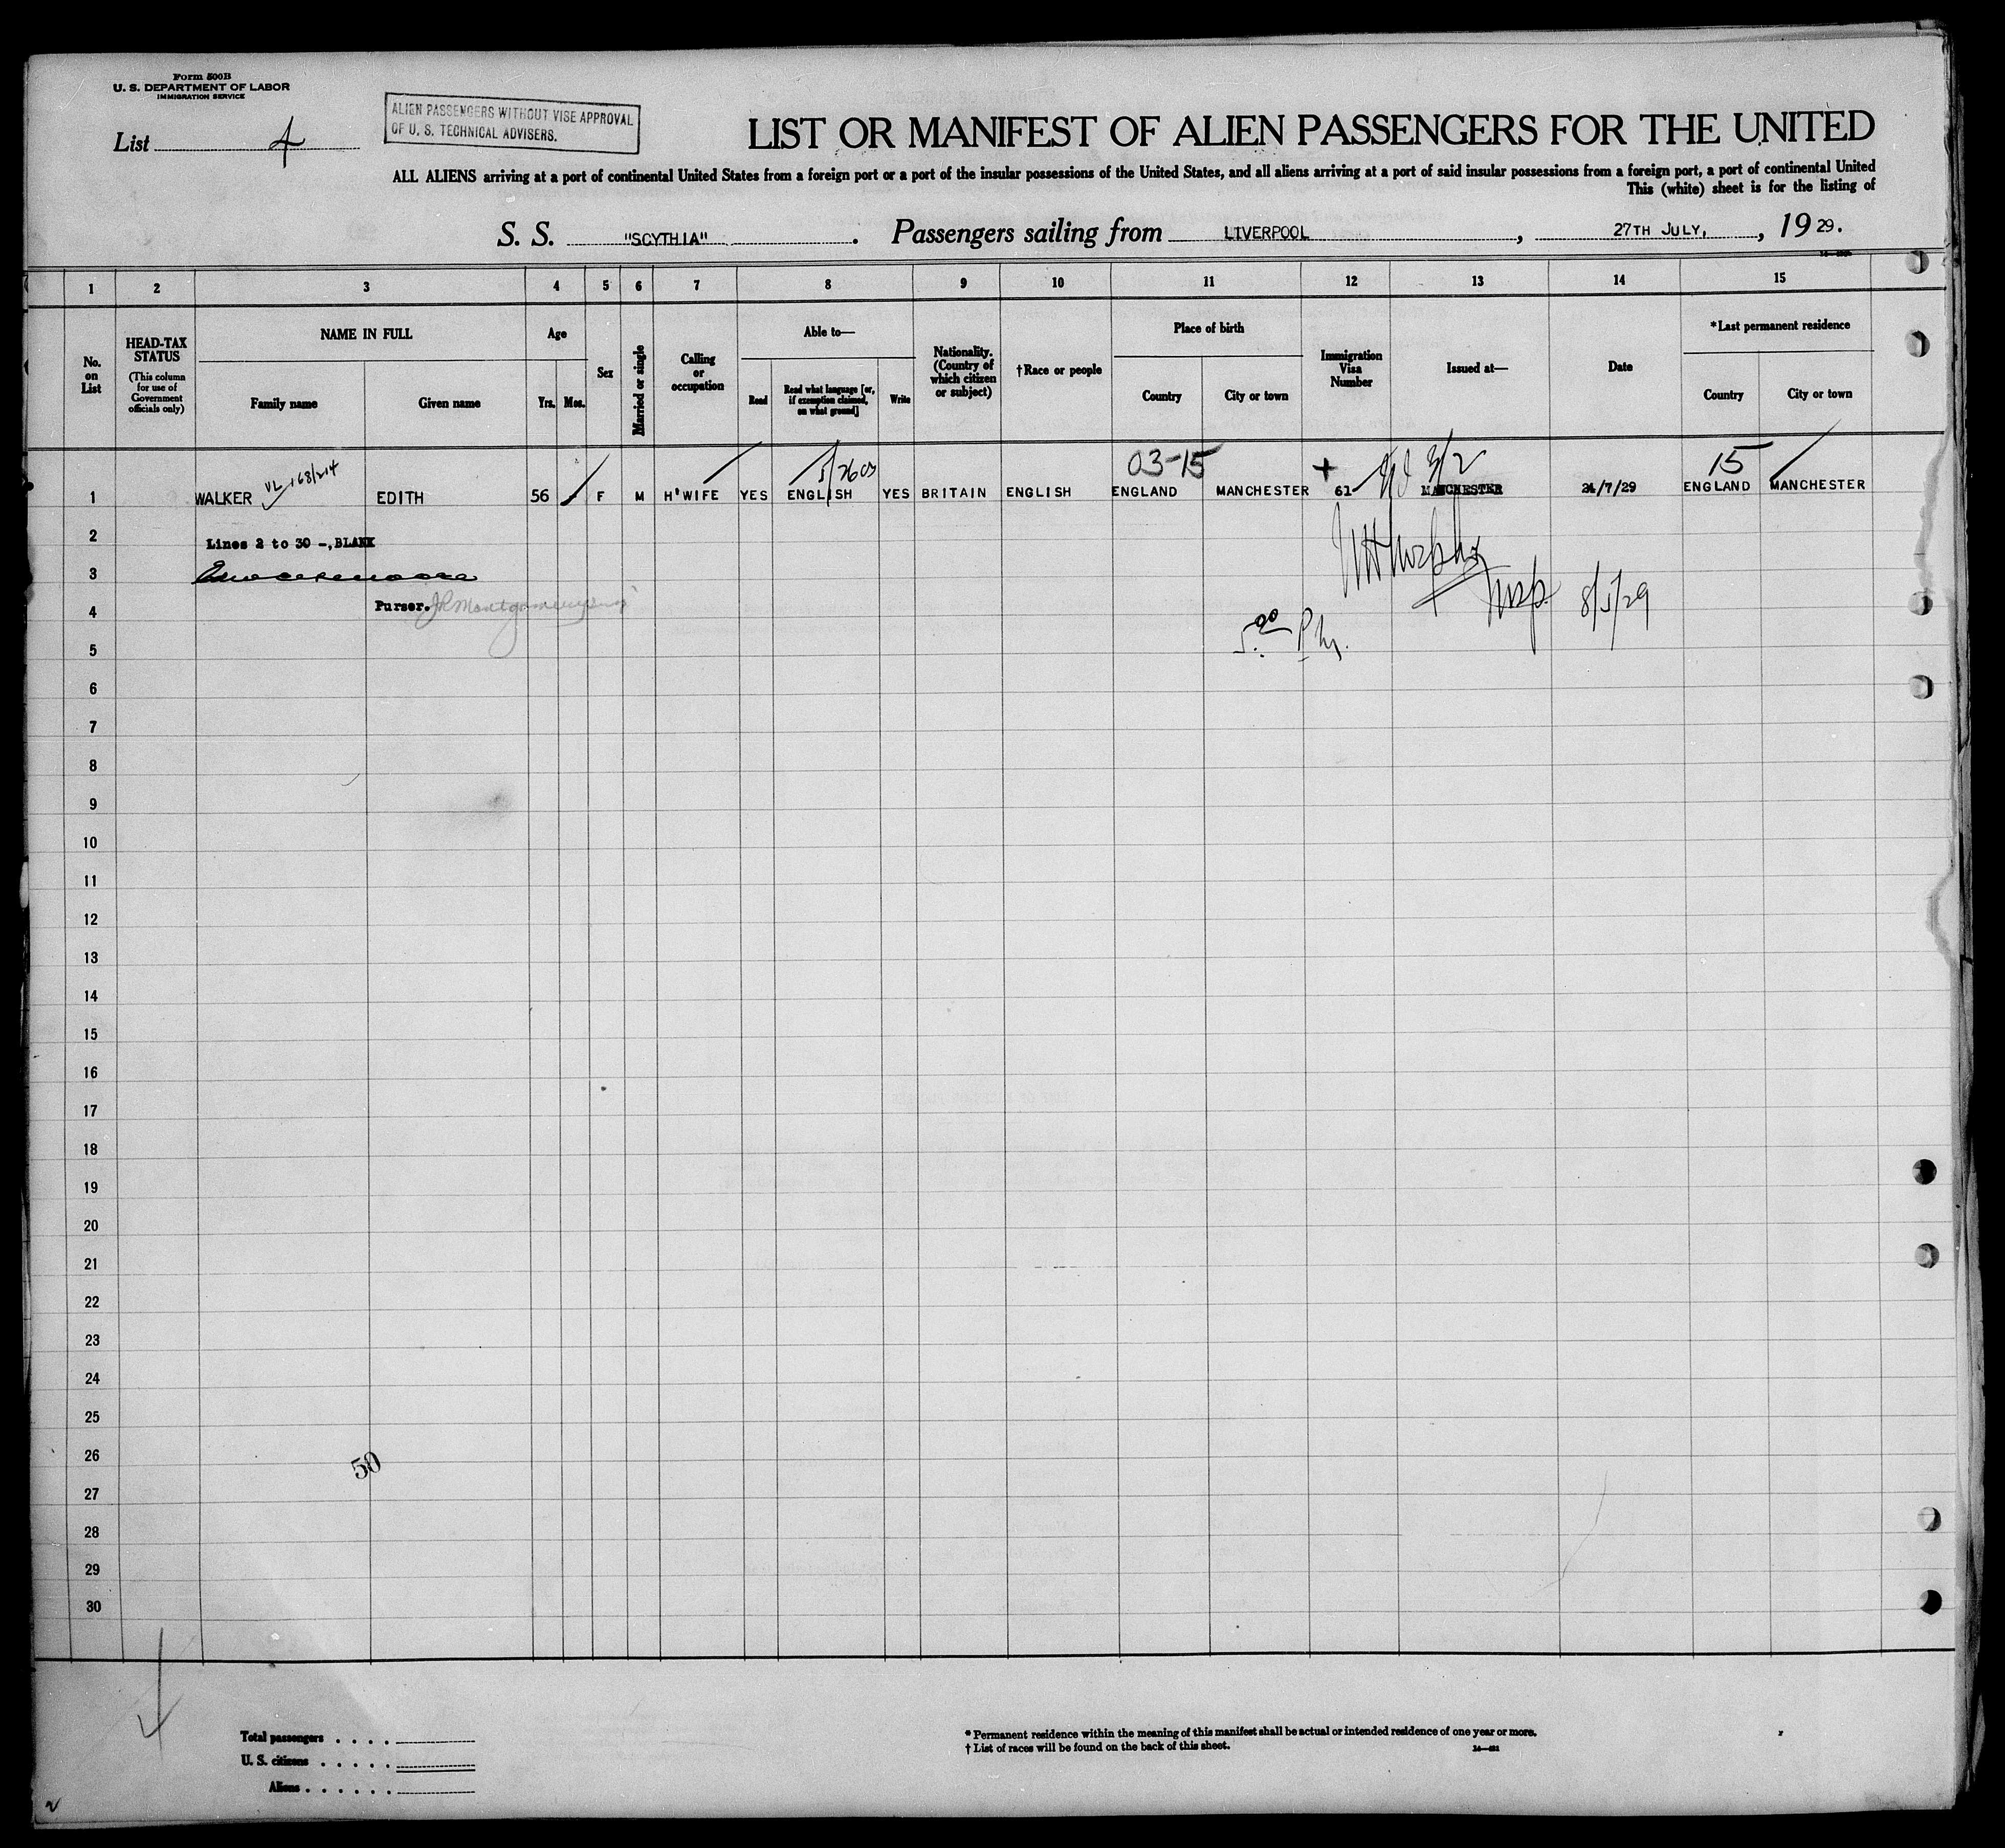 Form 500B
U. S. DEPARTMENT OF LABOR
IMMIGRATION SERVICE
List 4
ALIEN PASSENGERS WITHOUT VISE APPROVAL
OF U. S. TECHNICAL ADVISERS.
LIST OR MANIFEST OF ALIEN PASSENGERS FOR THE UNITED
ALL ALIENS arriving at a port of continental United States from a foreign port or a port of the insular possessions of the United States, and all aliens arriving at a port of said insular possessions from a foreign port, a port of continental United
This (white) sheet is for the listing of
S. S. "SCYTHIA" . Passengers sailing from LIVERPOOL , 27TH JULY, , 19 29.
1 2 3 4 5 6 7 8 9 10 11 12 13 14 15
No. on List
HEAD-TAX STATUS (This column for use of Government officials only)
NAME IN FULL
Family name Given name
Age
Yrs. Mos.
Sex
Married or single
Calling or occupation
Able to—
Read Read what language [or, if exemption claimed, on what ground] Write
Nationality. (Country of which citizen or subject)
†Race or people
Place of birth
Country City or town
Immigration Visa Number
Issued at—
Date
*Last permanent residence
Country City or town
VL 168/214 03-15 + 15
1 WALKER EDITH 56 F M H'WIFE YES ENGLISH YES BRITAIN ENGLISH ENGLAND MANCHESTER 61 MANCHESTER /7/29 ENGLAND MANCHESTER
2 Lines 2 to 30 -, BLANK
3
4 Purser. JR Montgomery 8/5/29
5
6
7
8
9
10
11
12
13
14
15
16
17
18
19
20
21
22
23
24
25
26 50
27
28
29
30
Total passengers . . . .
U. S. citizens . . . . .
Aliens . . . . . .
* Permanent residence within the meaning of this manifest shall be actual or intended residence of one year or more.
† List of races will be found on the back of this sheet.